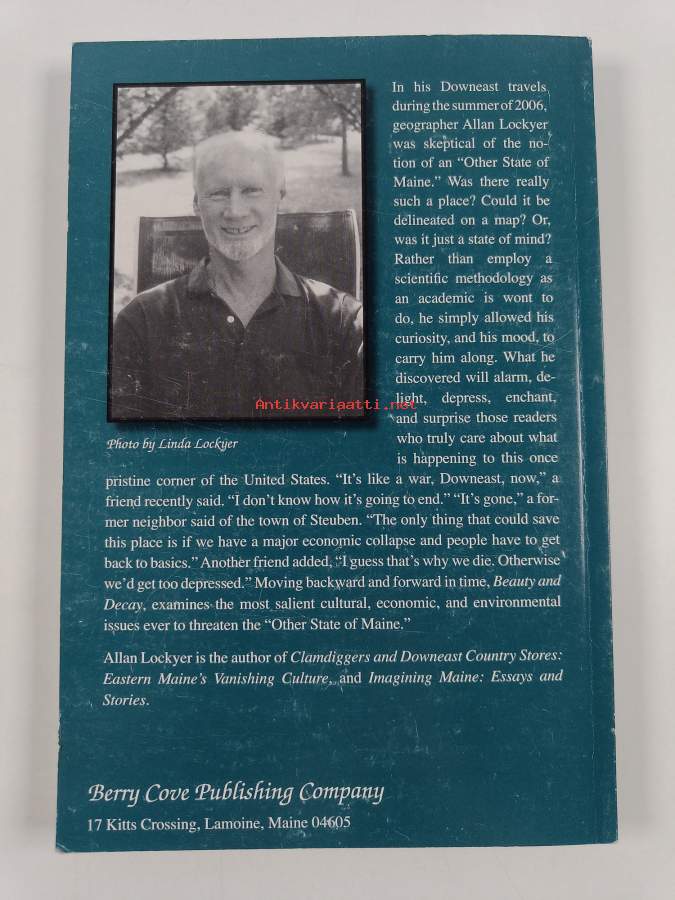 In his Downeast travels
during the summer of 2006,
geographer Allan Lockyer
was skeptical of the no-
tion of an “Other State of
Maine.” Was there really
such a place? Could it be
delineated on a map? Or,
was it just a state of mind?
Rather than employ a
scientific methodology as
an academic is wont to
do, he simply allowed his
curiosity, and his mood, to
carry him along. What he
discovered will alarm, de-
light, depress, enchant,
and surprise those readers
who truly care about what
is happening to this once
Antikvariaatti.net
Photo by Linda Lockyer
pristine corner of the United States. “It’s like a war, Downeast, now,” a
friend recently said. “I don’t know how it’s going to end.” “It’s gone,” a for-
mer neighbor said of the town of Steuben. “The only thing that could save
this place is if we have a major economic collapse and people have to get
back to basics.” Another friend added, “I guess that’s why we die. Otherwise
we’d get too depressed.” Moving backward and forward in time, Beauty and
Decay, examines the most salient cultural, economic, and environmental
issues ever to threaten the “Other State of Maine.”
Allan Lockyer is the author of Clamdiggers and Downeast Country Stores:
Eastern Maine’s Vanishing Culture, and Imagining Maine: Essays and
Stories.
Berry Cove Publishing Company
17 Kitts Crossing, Lamoine, Maine 04605